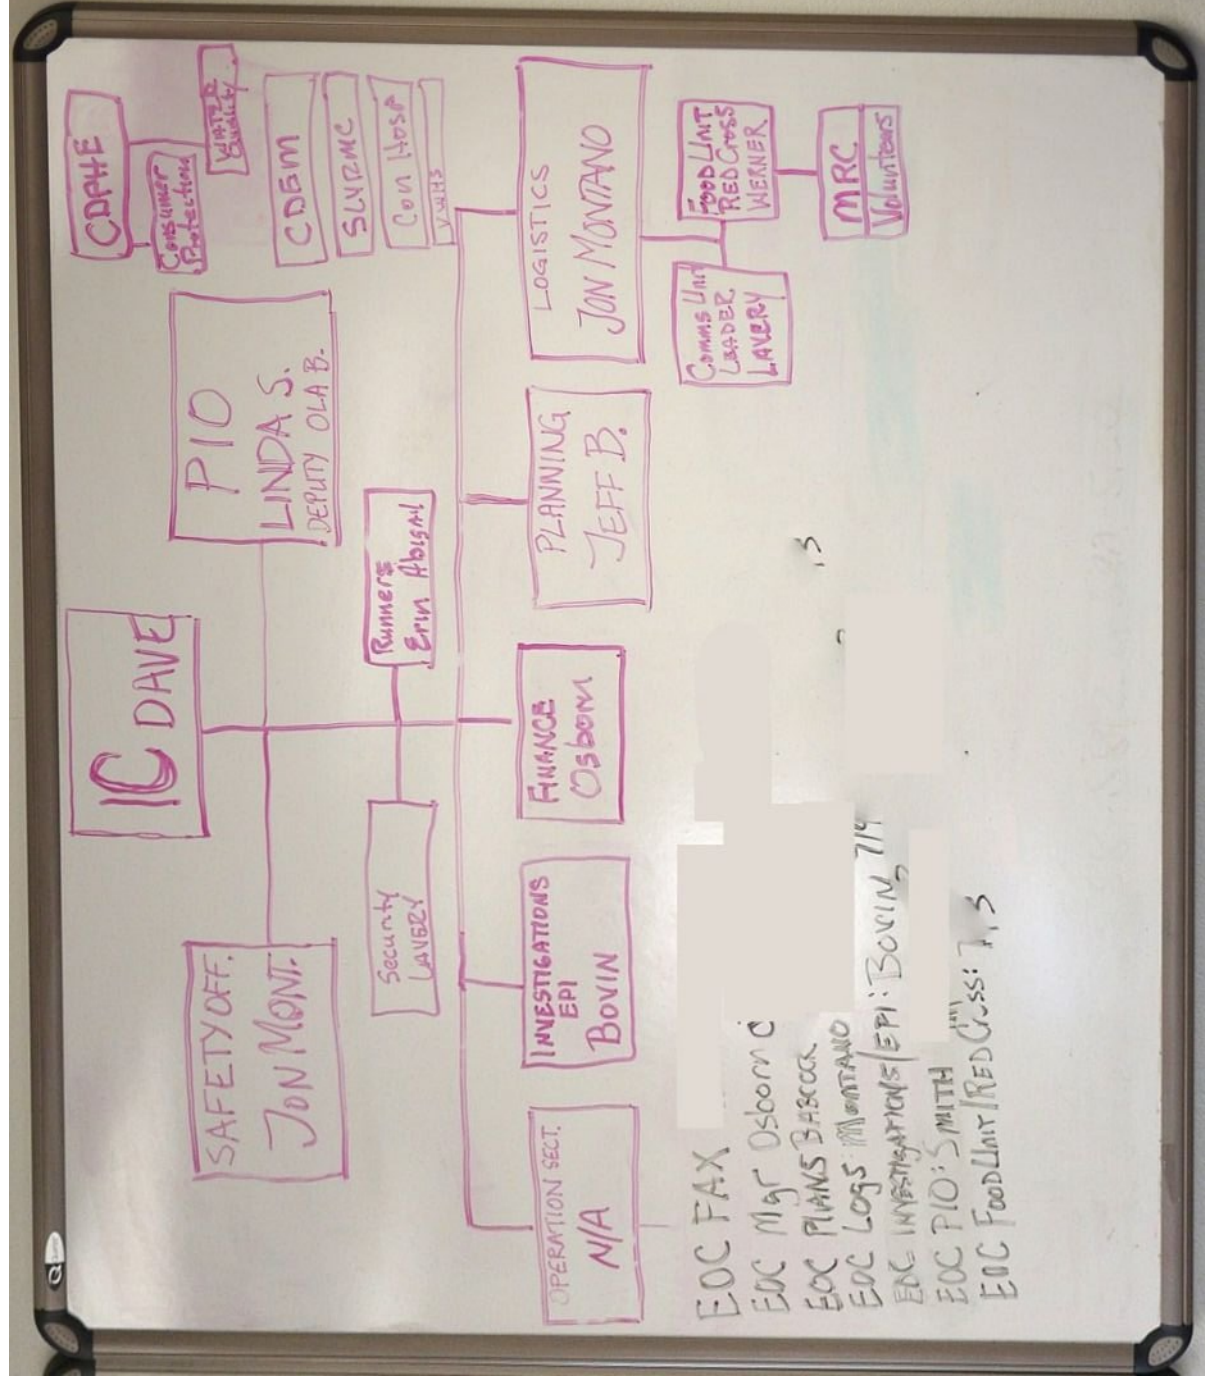 IC DAVE
SAFETY OFF.
JON MONT.
PIO
LINDA S.
DEPUTY OLA B.
CDPHE
Consumer
Protection
WATER
Quality
CDEM
SLVRMC
Con Hosp
VWHS
Security
LAVERY
Runners
Erin Abigail
OPERATION SECT.
N/A
INVESTIGATIONS
EPI
BOVIN
FINANCE
Osborn
PLANNING
JEFF B.
LOGISTICS
JON MONTANO
Comms Unit
LEADER
LAVERY
FOOD UNIT
RED Cross
WERNER
MRC
Volunteers
EOC FAX
EOC Mgr Osborn C
EOC PLANS BABCOCK
EOC Logs: MONTANO
EOC INVESTIGATIONS/EPI: BOVIN 719
EOC PIO: SMITH
EOC Food Unit/RED Cross: